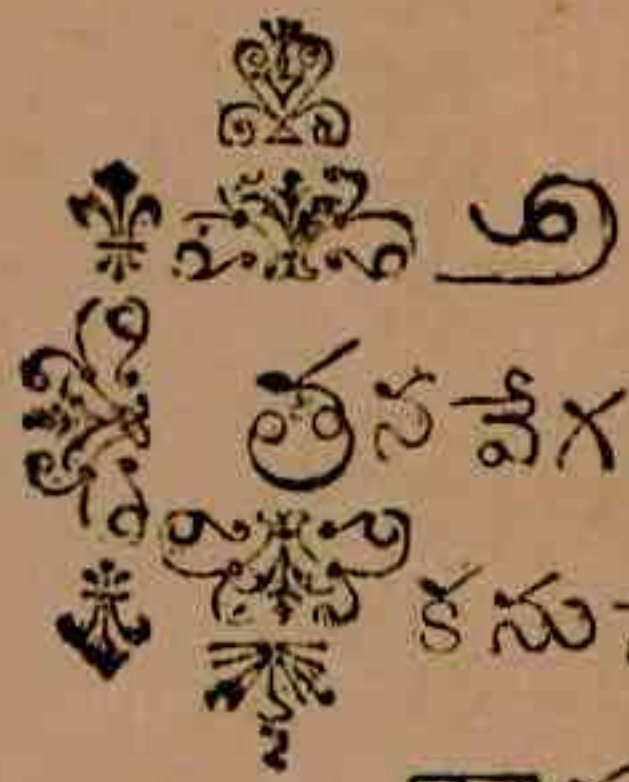 అ
తనవేగ
కను